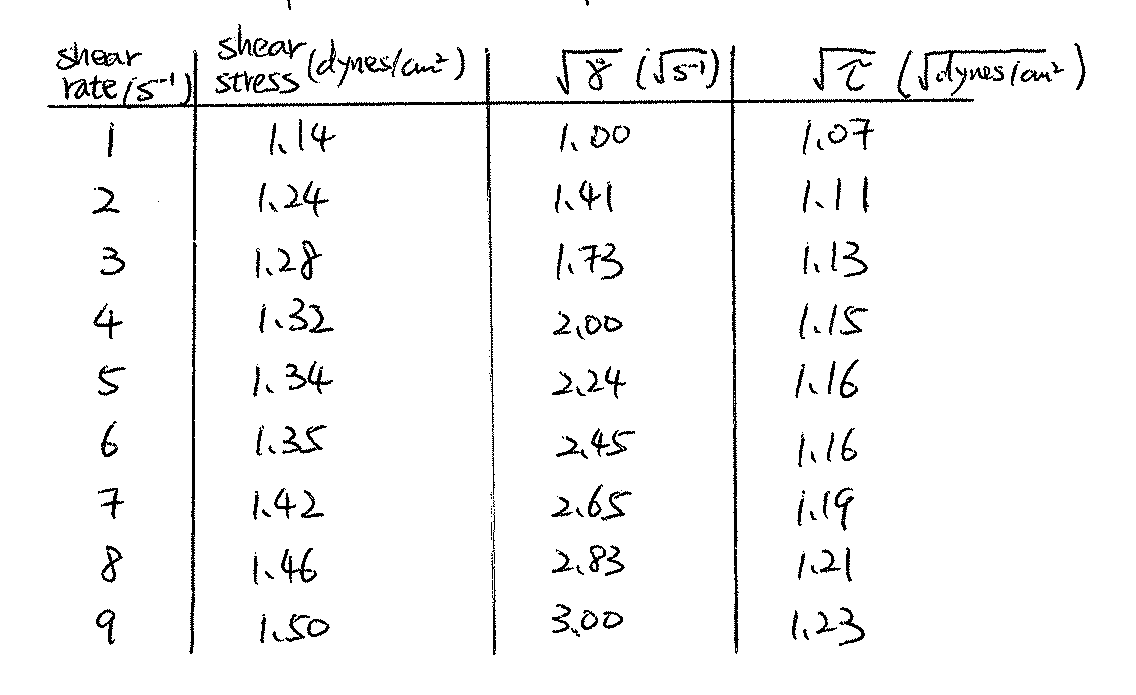 shear rate (s⁻¹) shear stress (dynes/cm²) √γ̇ (√s⁻¹) √τ (√dynes/cm²)
1 1.14 1.00 1.07
2 1.24 1.41 1.11
3 1.28 1.73 1.13
4 1.32 2.00 1.15
5 1.34 2.24 1.16
6 1.35 2.45 1.16
7 1.42 2.65 1.19
8 1.46 2.83 1.21
9 1.50 3.00 1.23